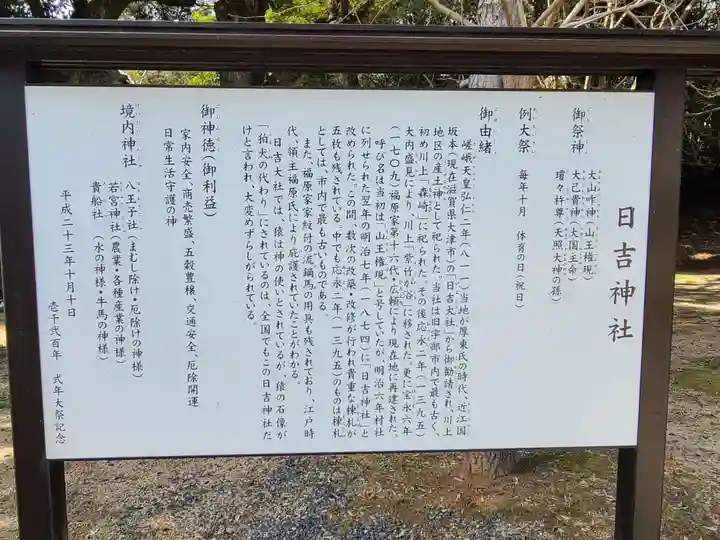 日吉神社
御祭神
大山咋神(山王権現)
大己貴神(大国主命)
瓊々杵尊(天照大神の孫)
例大祭
毎年十月 体育の日(祝日)
御由緒
嵯峨天皇弘仁二年(八一一)当地が厚東氏の時代、近江国
坂本(現在滋賀県大津市)の「日吉大社」から御勧請され、川上
地区の産土神として祀られた。当社は旧宇部市内で最も古く、
初め川上「森崎」に祀られた。その後応永二年(一三九五)
大内盛見により、川上「常竹が浴」に移された。更に宝永六年
(一七〇九)福原家第十六代・広頼により現在地に再建された。
呼び名は当初は「山王権現」と号していたが、明治六年村社
に列せられた翌年の明治七年(一八七四)に「日吉神社」と
改められた。この間、数次の改築・改修が行われ貴重な棟札が
五枚も残されている。中でも応永二年(一三九五)のものは棟札
としては、市内で最も古いものである。
また、福原家家紋付の流鏑馬の用具も残されており、江戸時
代、領主福原氏により庇護されていたことがわかる。
日吉大社では、猿は神の使いとされているが、猿の石像が
「狛犬の代わり」にされているのは、全国でもこの日吉神社だ
けと言われ、大変めずらしがられている。
御神徳(御利益)
家内安全、商売繁盛、五穀豊穣、交通安全、厄除開運
日常生活守護の神
境内神社
八王子社(まむし除け・厄除けの神様)
若宮神社(農業・各種産業の神様)
貴船社 (水の神様・牛馬の神様)
平成二十三年十月十日
壱千弐百年 式年大祭記念